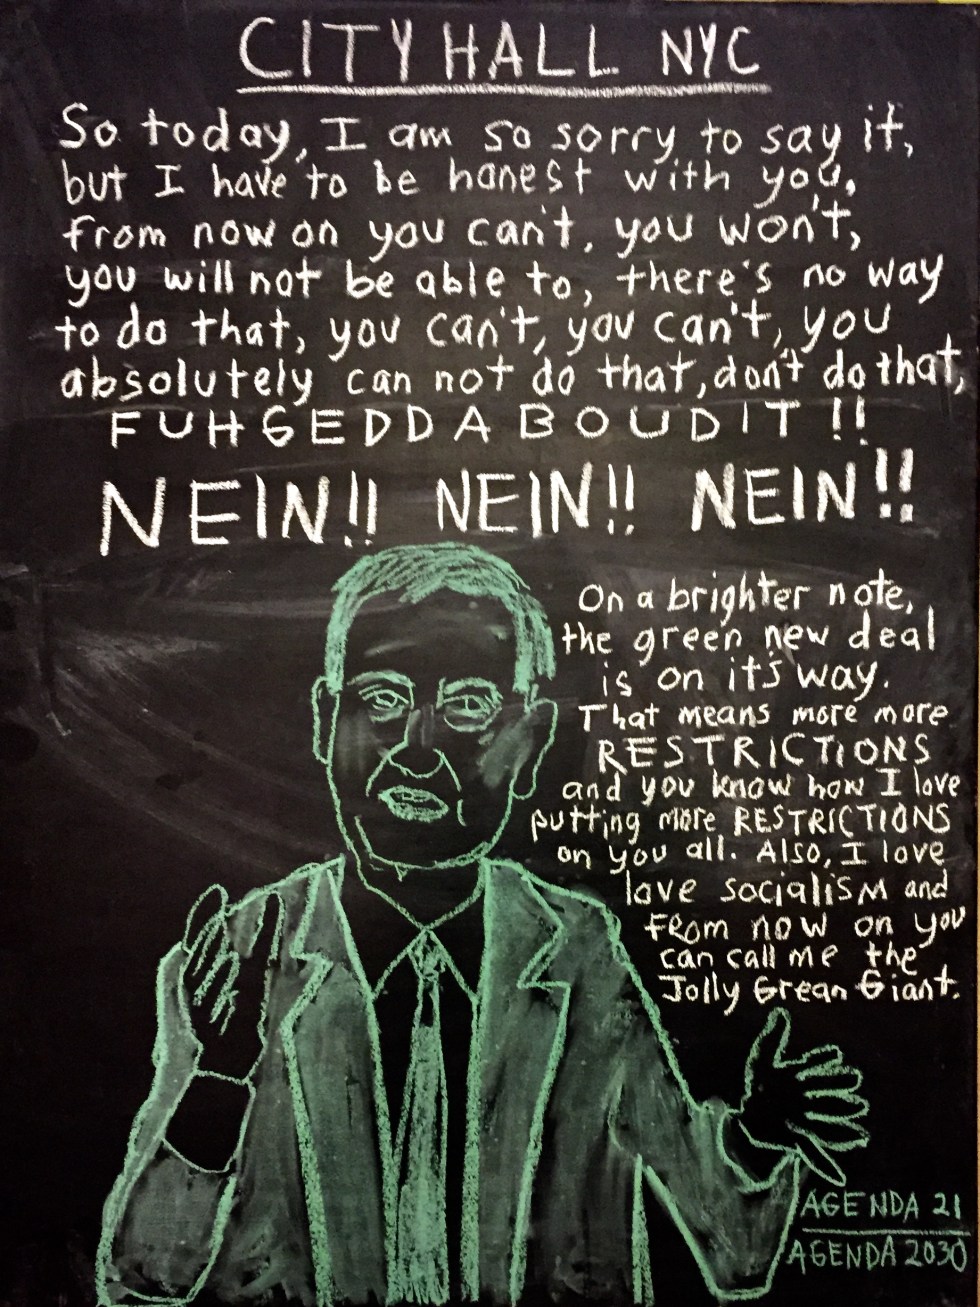 CITY HALL NYC
So today, I am so sorry to say it,
but I have to be honest with you,
from now on you can't, you won't,
you will not be able to, there's no way
to do that, you can't, you can't, you
absolutely can not do that, don't do that,
FUHGEDDABOUDIT!!
NEIN!! NEIN!! NEIN!!
On a brighter note,
the green new deal
is on it's way.
That means more more
RESTRICTIONS
and you know how I love
putting more RESTRICTIONS
on you all. Also, I love
love socialism and
from now on you
can call me the
Jolly Grean Giant.
AGENDA 21
AGENDA 2030